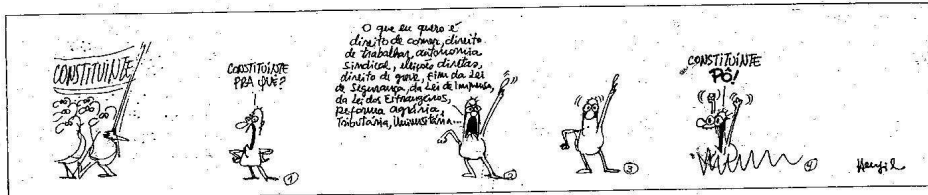 CONSTITUINTE!
CONSTITUINTE
PRA QUÊ?
1
O que eu quero é
direito de comer, direito
de trabalhar, autonomia
sindical, eleições diretas,
direito de greve, fim da Lei
de Segurança, da Lei de Imprensa,
da Lei dos Estrangeiros,
Reforma agrária,
Tributária, Universitária...
2
3
CONSTITUINTE
PÔ!
4
Henfil